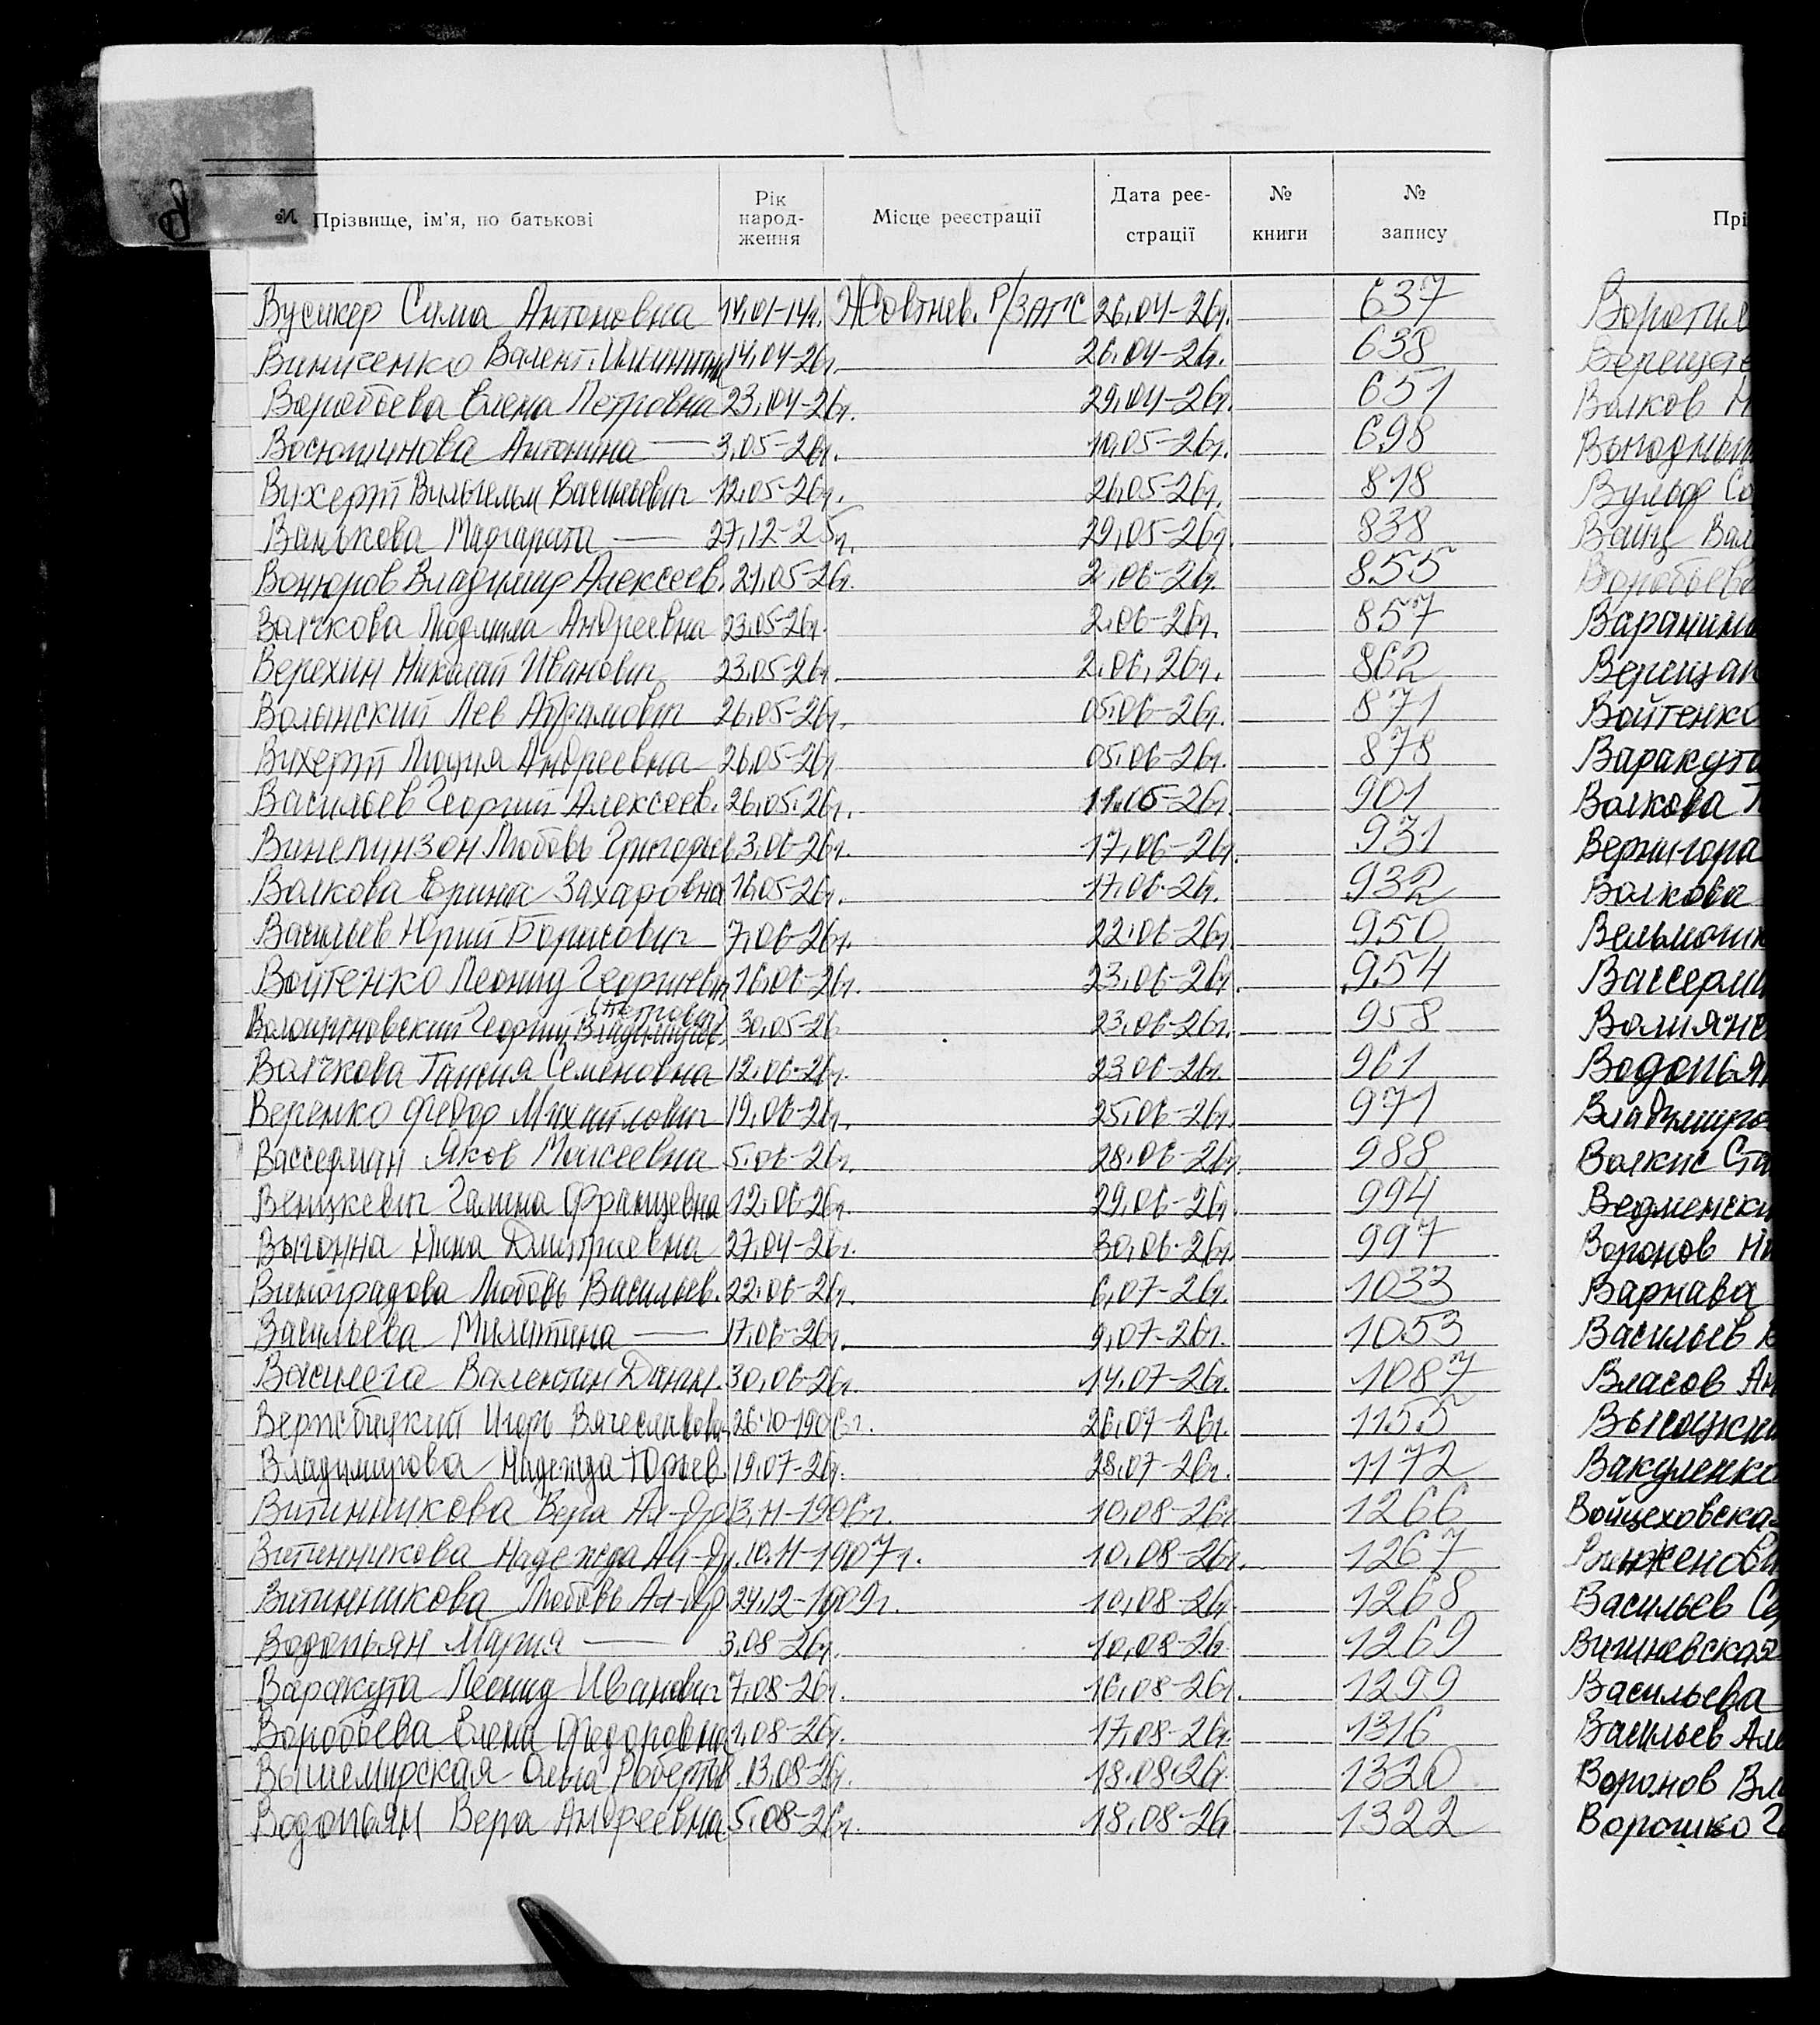 № Прізвище, ім'я, по батькові Рік народження Місце реєстрації Дата реєстрації № книги № запису
Вусикер Сима Антоновна 14.01-14г. Жовтнев. Р/ЗАГС 26.04-26г. 637
Виниченко Валент. 14.04-26г. 26.04-26г. 638
Воробьева Елена Петровна 23.04-26г. 29.04-26г. 651
Антонина — 3.05-26г. 10.05-26г. 698
Вихерт Вильгельм Васильевич 12.05-26г. 26.05-26г. 818
Ванькова Маргарита — 27.12-25г. 29.05-26г. 838
Владимир Алексеев. 21.05-26г. 2.06-26г. 855
Волчкова Людмила Андреевна 23.05-26г. 2.06-26г. 857
Верехин Николай Иванович 23.05-26г. 2.06.26г. 862
Волынский Лев Абрамович 26.05-26г. 05.06-26г. 871
Вихерт Люция Андреевна 26.05-26г. 05.06-26г. 878
Васильев Георгий Алексеев. 26.05.26г. 11.06-26г. 901
Любовь Григорьев 3.06-26г. 17.06-26г. 932
Волкова Ерина Захаровна 16.05-26г. 17.06-26г. 932
Васильев Юрий Борисович 7.06-26г. 22.06-26г. 950
Войтенко Леонид Георгиевич 16.06-26г. 23.06-26г. 954
(Петрович)
Волошиновский Георгий Владимиров. 30.05-26 23.06-26г. 958
Волчкова Таисия Семеновна 12.06-26г. 23.06-26г. 961
Веренко Федор Михайлович 19.06-26г. 25.06-26г. 971
Вассерман Яков Моисеевна 5.06-26г. 28.06-26г. 988
Венцкевич Галина Францевна 12.06-26г. 29.06-26г. 994
Выгонна Нина Дмитриевна 27.04-26г. 30.06-26г. 997
Виноградова Любовь Васильев. 22.06-26г. 6.07-26г. 1033
Васильева Милитина — 17.06-26г. 9.07-26г. 1053
Василега Валентин Данил. 30.06-26г. 14.07-26г. 1087
Вержбицкий Игорь Вячеславов. 26.10-1906г. 26.07-26г. 1155
Владимирова Надежда Юрьев. 19.07-26г. 28.07-26г. 1172
Витинникова Вера Ал-др 13.11-1906г. 10.08-26г. 1266
Витинникова Надежда Ал-др. 10.11-1907г. 10.08-26г. 1267
Витинникова Любовь Ал-др 24.12-1909г. 10.08-26г. 1268
Водопьян Мария — 3.08-26г. 10.08-26г. 1269
Варакута Леонид Иванович 7.08-26г. 16.08-26г. 1299
Воробьева Елена Федоровна 1.08-26г. 17.08-26г. 1316
Вышемирская Ольга Робертов. 13.08-26г. 18.08.26г. 1320
Водопьян Вера Андреевна 5.08-26г. 18.08-26г 1322
Прі
Волков
Вульф
Вайц
Воробьева
Войтенко
Варакута
Волкова
Вернигора
Волкова
Водопьян
Волкис Ста
Воронов
Варнава
Васильев
Власов Ан
Вакуленко
Войцеховская
Васильев Се
Вишневская
Васильева
Васильев Але
Воронов Вла
Ворошко